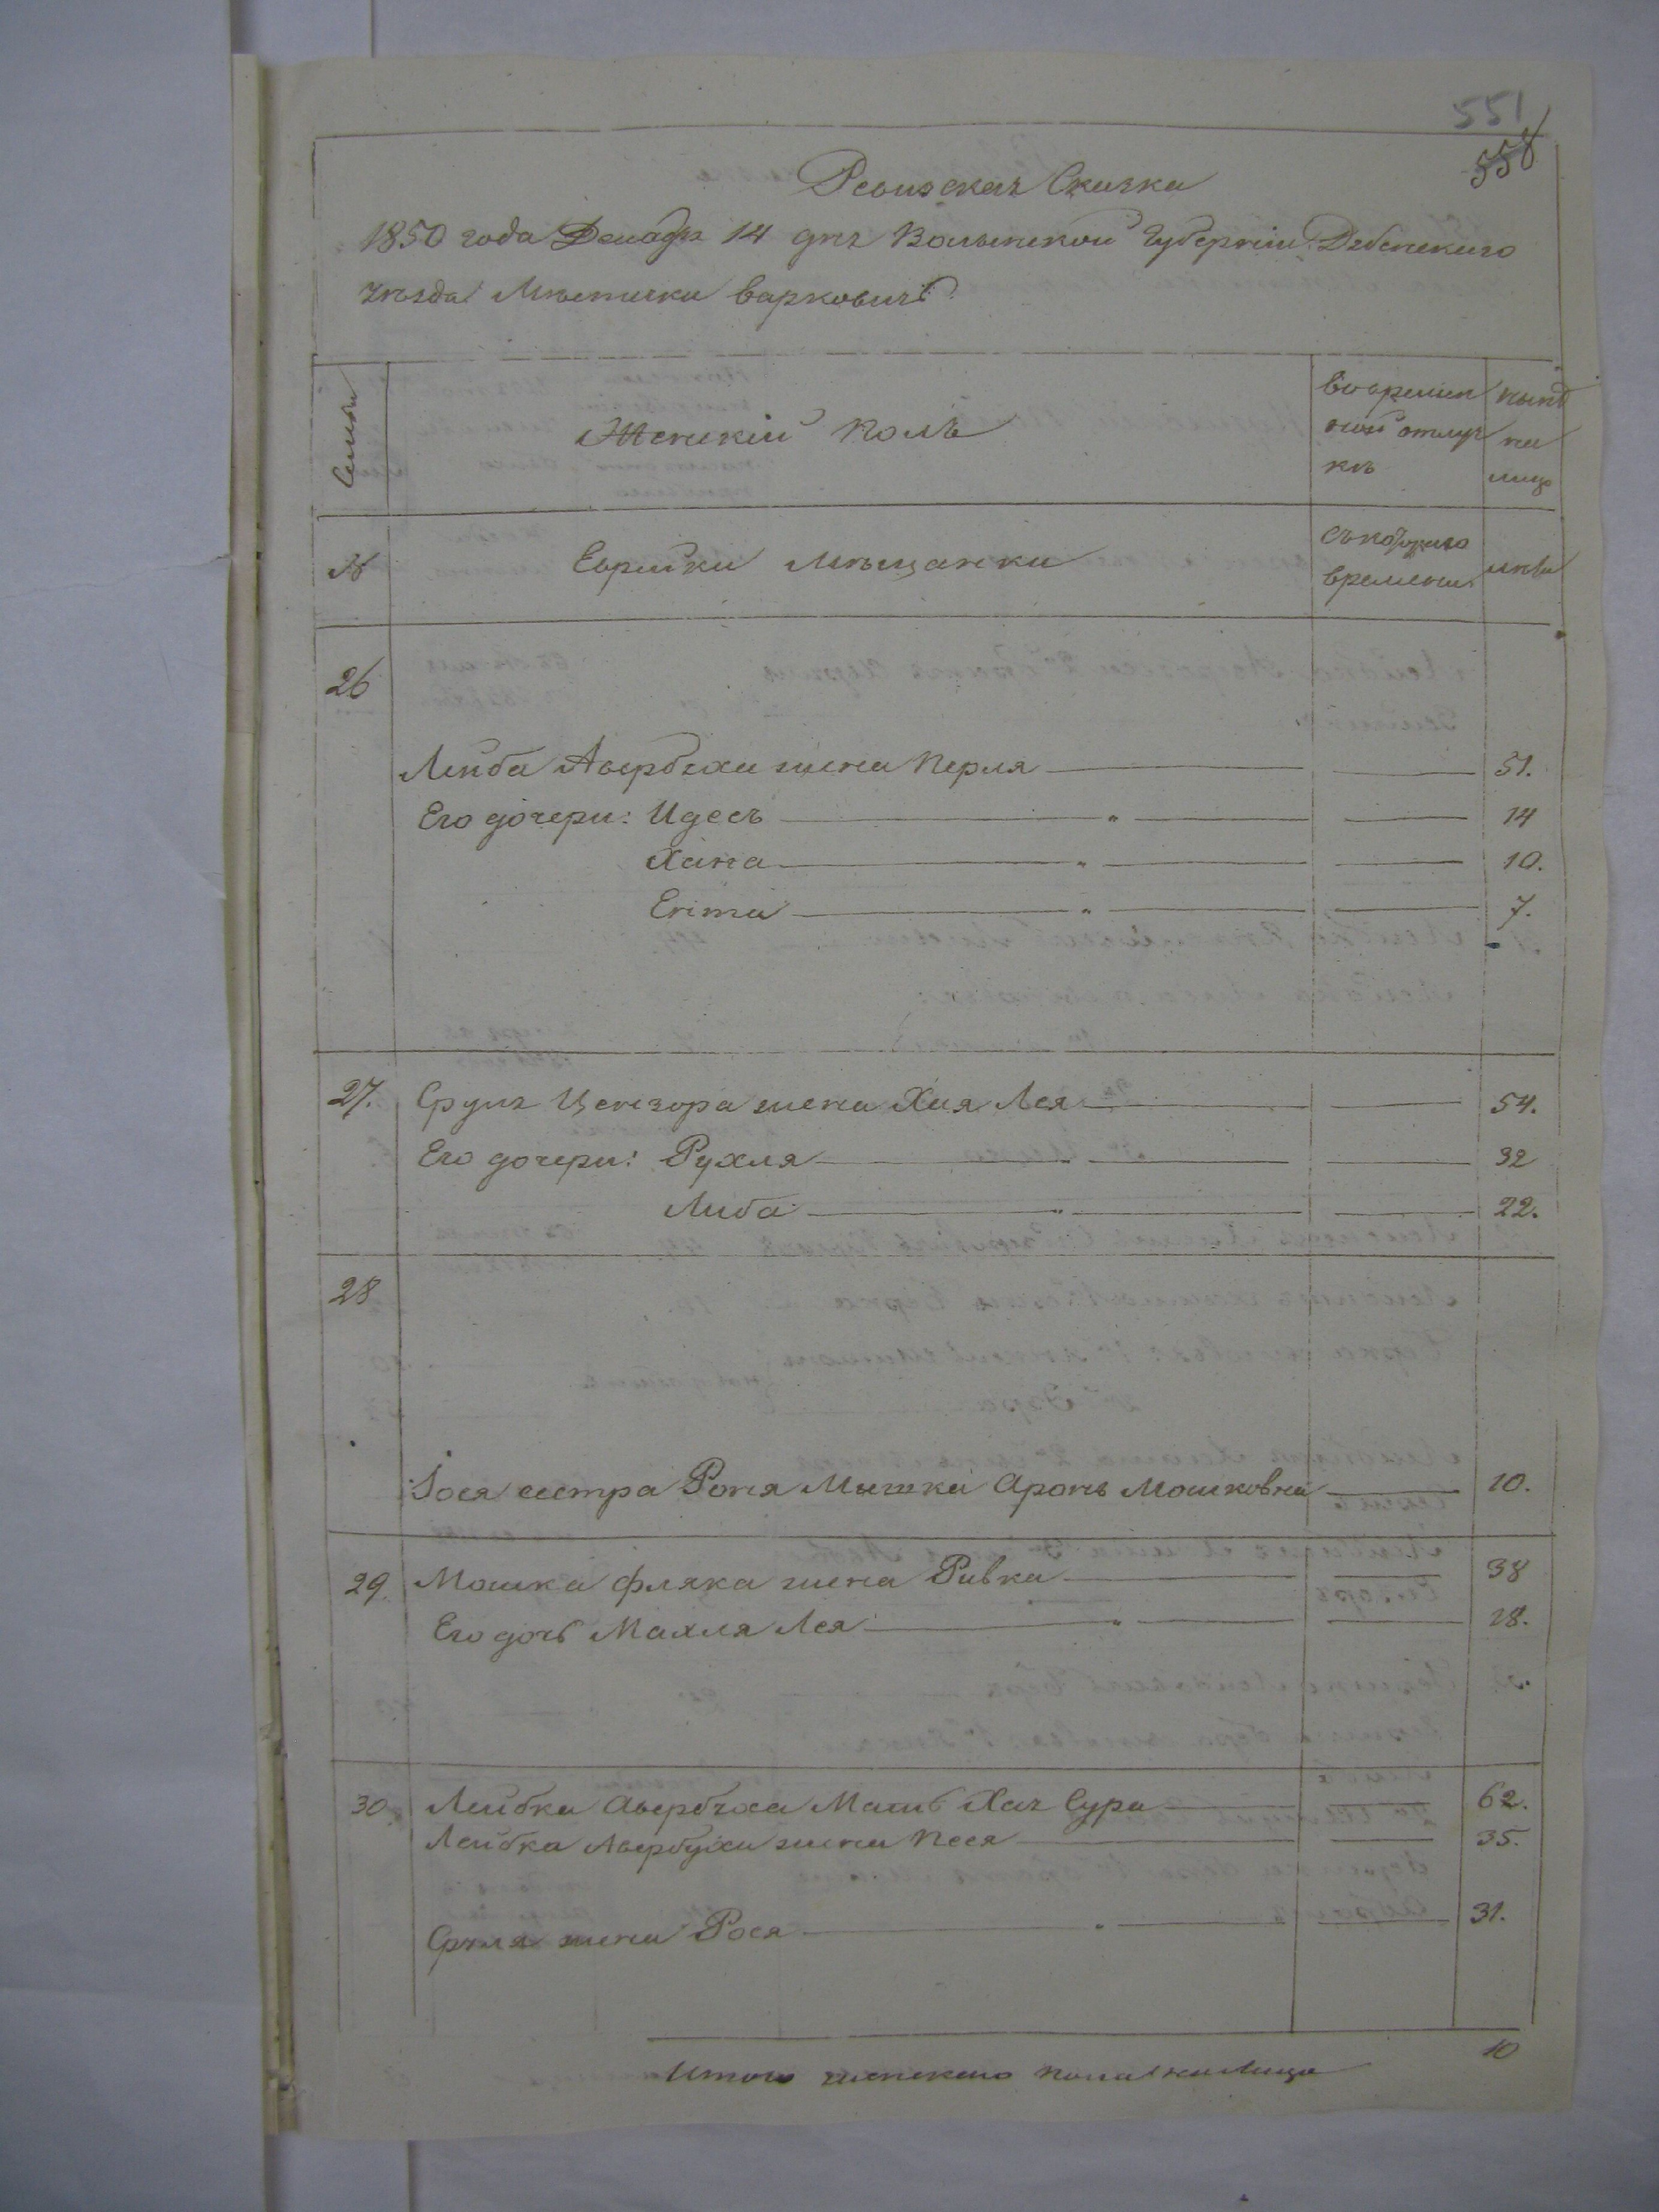 551
558
Ревизская Сказка
1850 года Декабря 14 дня Волынской Губерніи Дубенскаго
уезда Местечка Варковичь
Семьи
Женскій полъ
Во времен
ной отлуч
кѣ
ныне
на
лицо
№
Еврейки мѣщанки
Съ котораго
времени
лета
26
Лейба Авербуха жена Перля 51.
Его дочери: Идесъ " 14
Хана " 10.
Ента " 7.
27. Сруля Цензора жена Хая Лея 54.
Его дочери: Рухля 32
Либа " 22.
28
Іося сестра Роня Мышки Аронъ Мошковна 10.
29. Мошка Фляка жена Ривка 38
Его дочь Махля Лея " 18.
30 Лейбка Авербуха Мать Хая Сура 62.
Лейбка Авербуха жена Песя 35.
Сруля жена Рося " 31.
10
Итого женскаго пола на Лицо